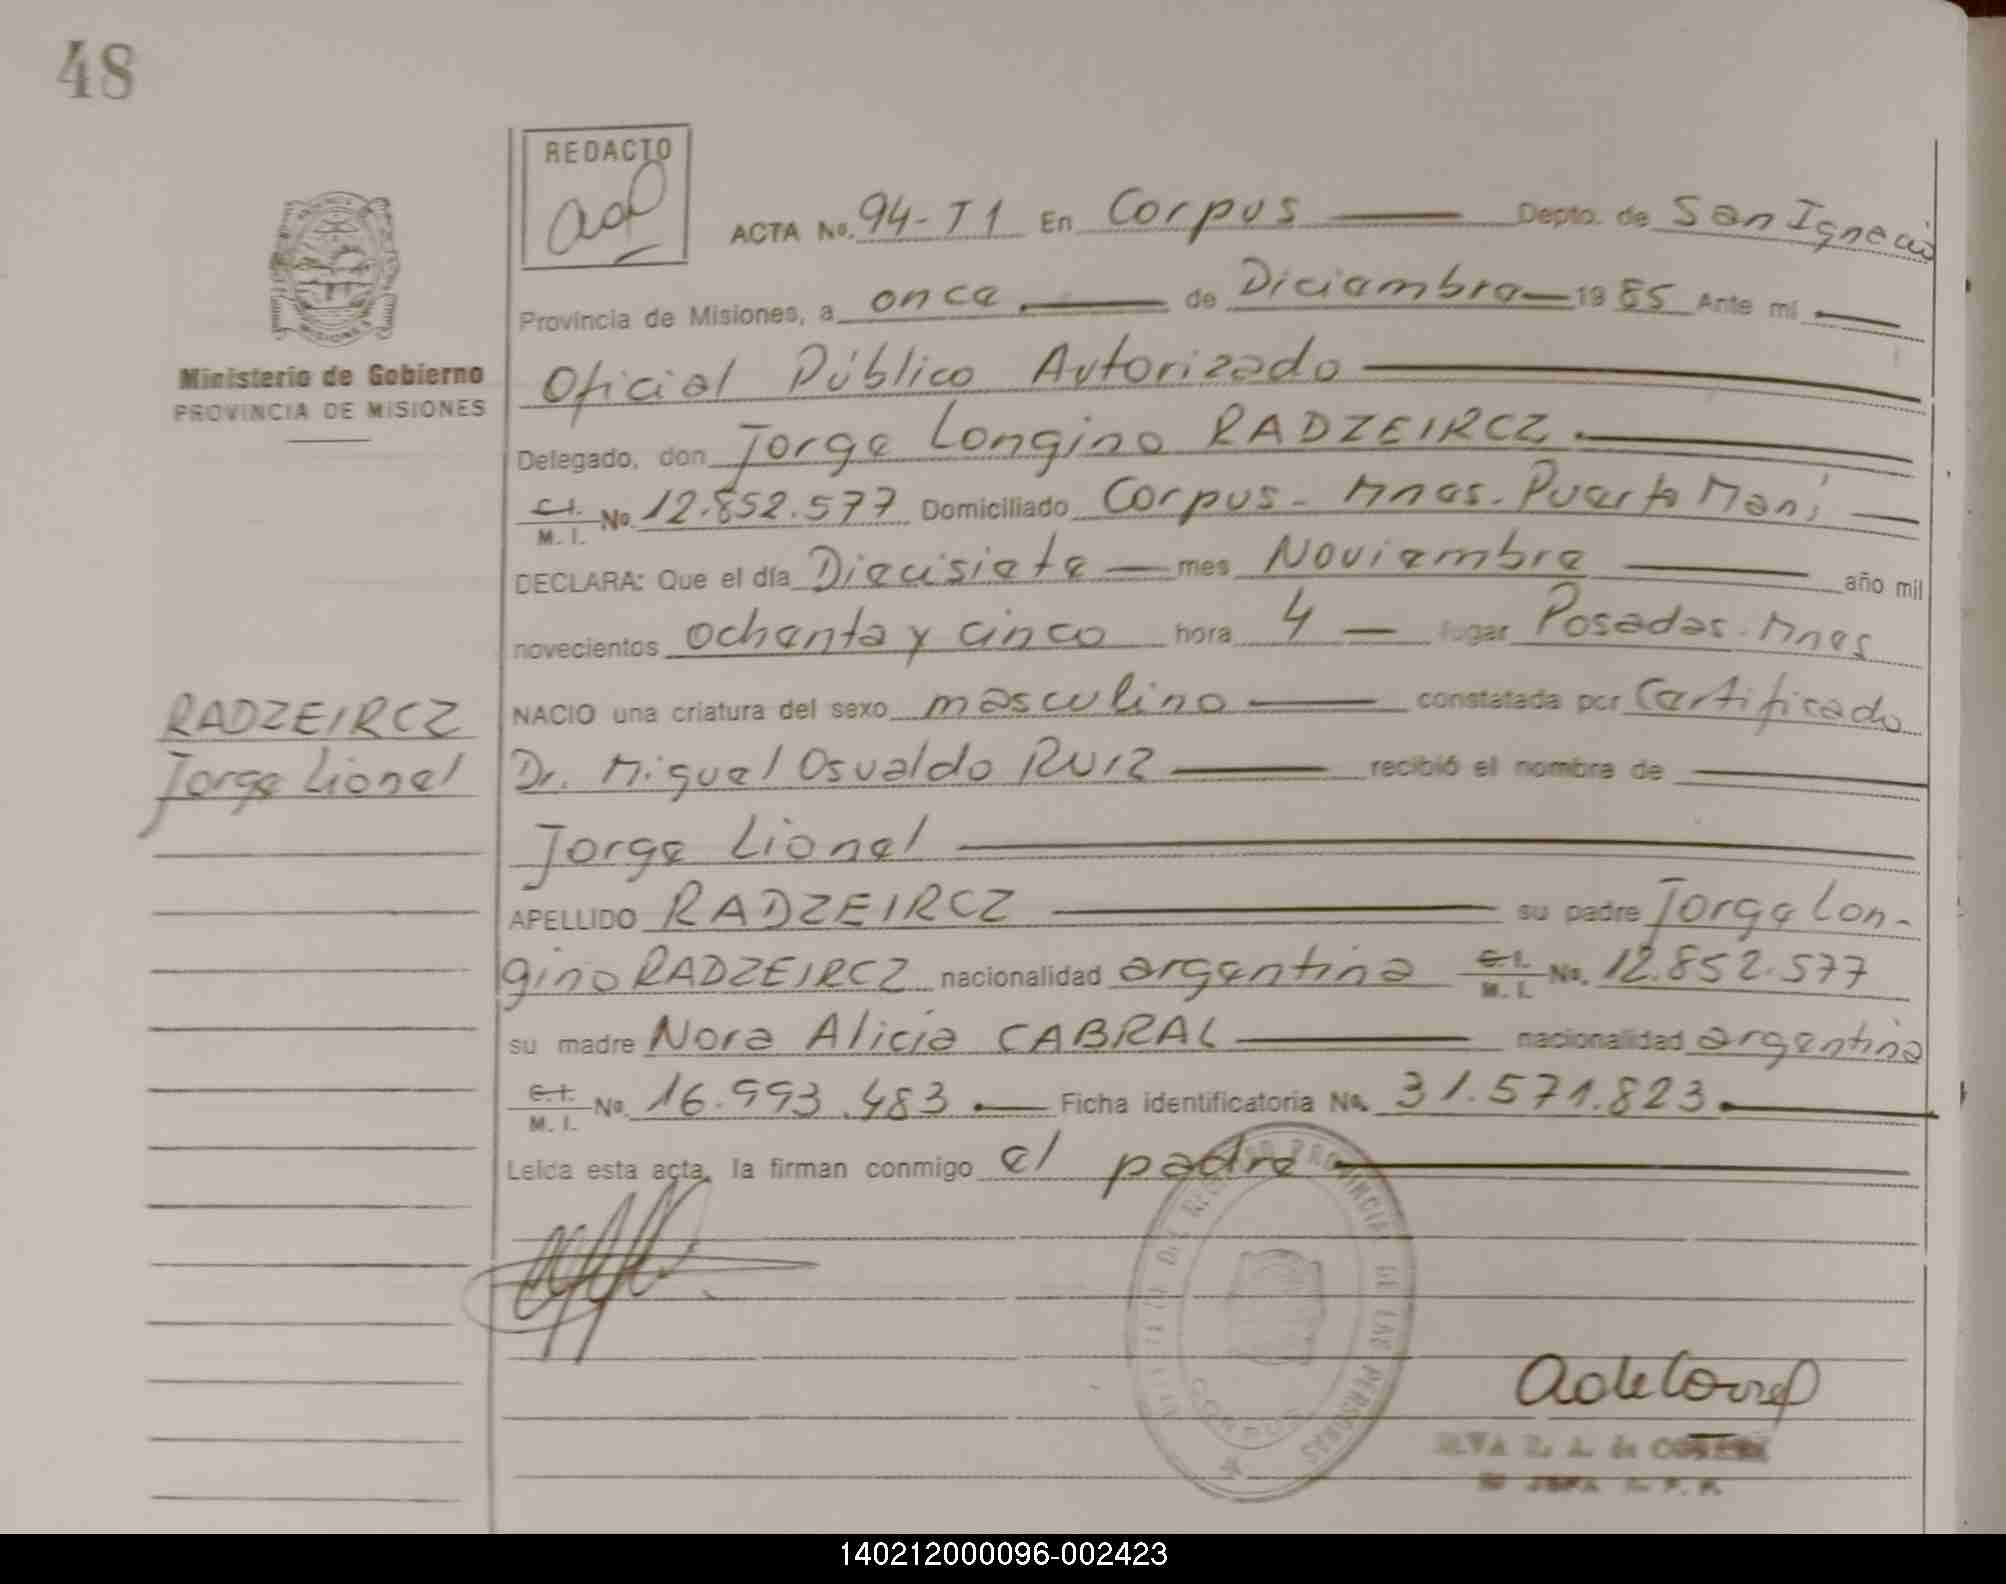 48
REDACTO
ACTA No. 94-T1 En Corpus Depto. de San Ignacio
Provincia de Misiones, a once de Diciembre 1985 Ante mi
Ministerio de Gobierno
PROVINCIA DE MISIONES
Oficial Público Autorizado
Delegado, don Jorge Longino RADZEIRCZ.
C.I. M. I. No. 12.852.577 Domiciliado Corpus - Mnes. Puerto Maní
DECLARA: Que el día Diecisiete mes Noviembre año mil
novecientos ochenta y cinco hora 4 lugar Posadas. Mnes
RADZEIRCZ
Jorge Lionel
NACIO una criatura del sexo masculino constatada por Certificado
Dr. Miguel Osvaldo RUIZ recibió el nombre de
Jorge Lionel
APELLIDO RADZEIRCZ su padre Jorge Lon-
gino RADZEIRCZ nacionalidad argentina C.I. M. I. No. 12.852.577
su madre Nora Alicia CABRAL nacionalidad argentina
C.I. M. I. No. 16.993.483 Ficha identificatoria No. 31.571.823
Leida esta acta, la firman conmigo el padre
PROVINCIAL DE LAS PERSONAS
CORPUS
140212000096-002423